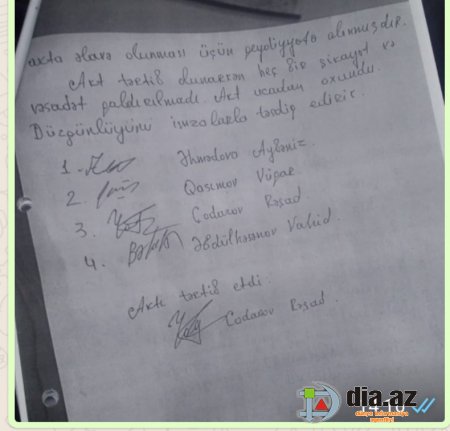 axta əlavə olunması üçün peydiyyətə alınmışdır.
Akt tərtib olunarkən heç bir şikayət və
vəsadət qaldırılmadı. Akt ucadan oxundu.
Düzgünlüyünü imzalarla təsdiq edirik.
1. Əhmədova Aybəniz
2. Qasımov Vüqar
3. Cədarov Rəşad
4. Əbdülhəsənov Vahid.
Aktı tərtib etdi:
Cədarov Rəşad.
dia.az
14:10